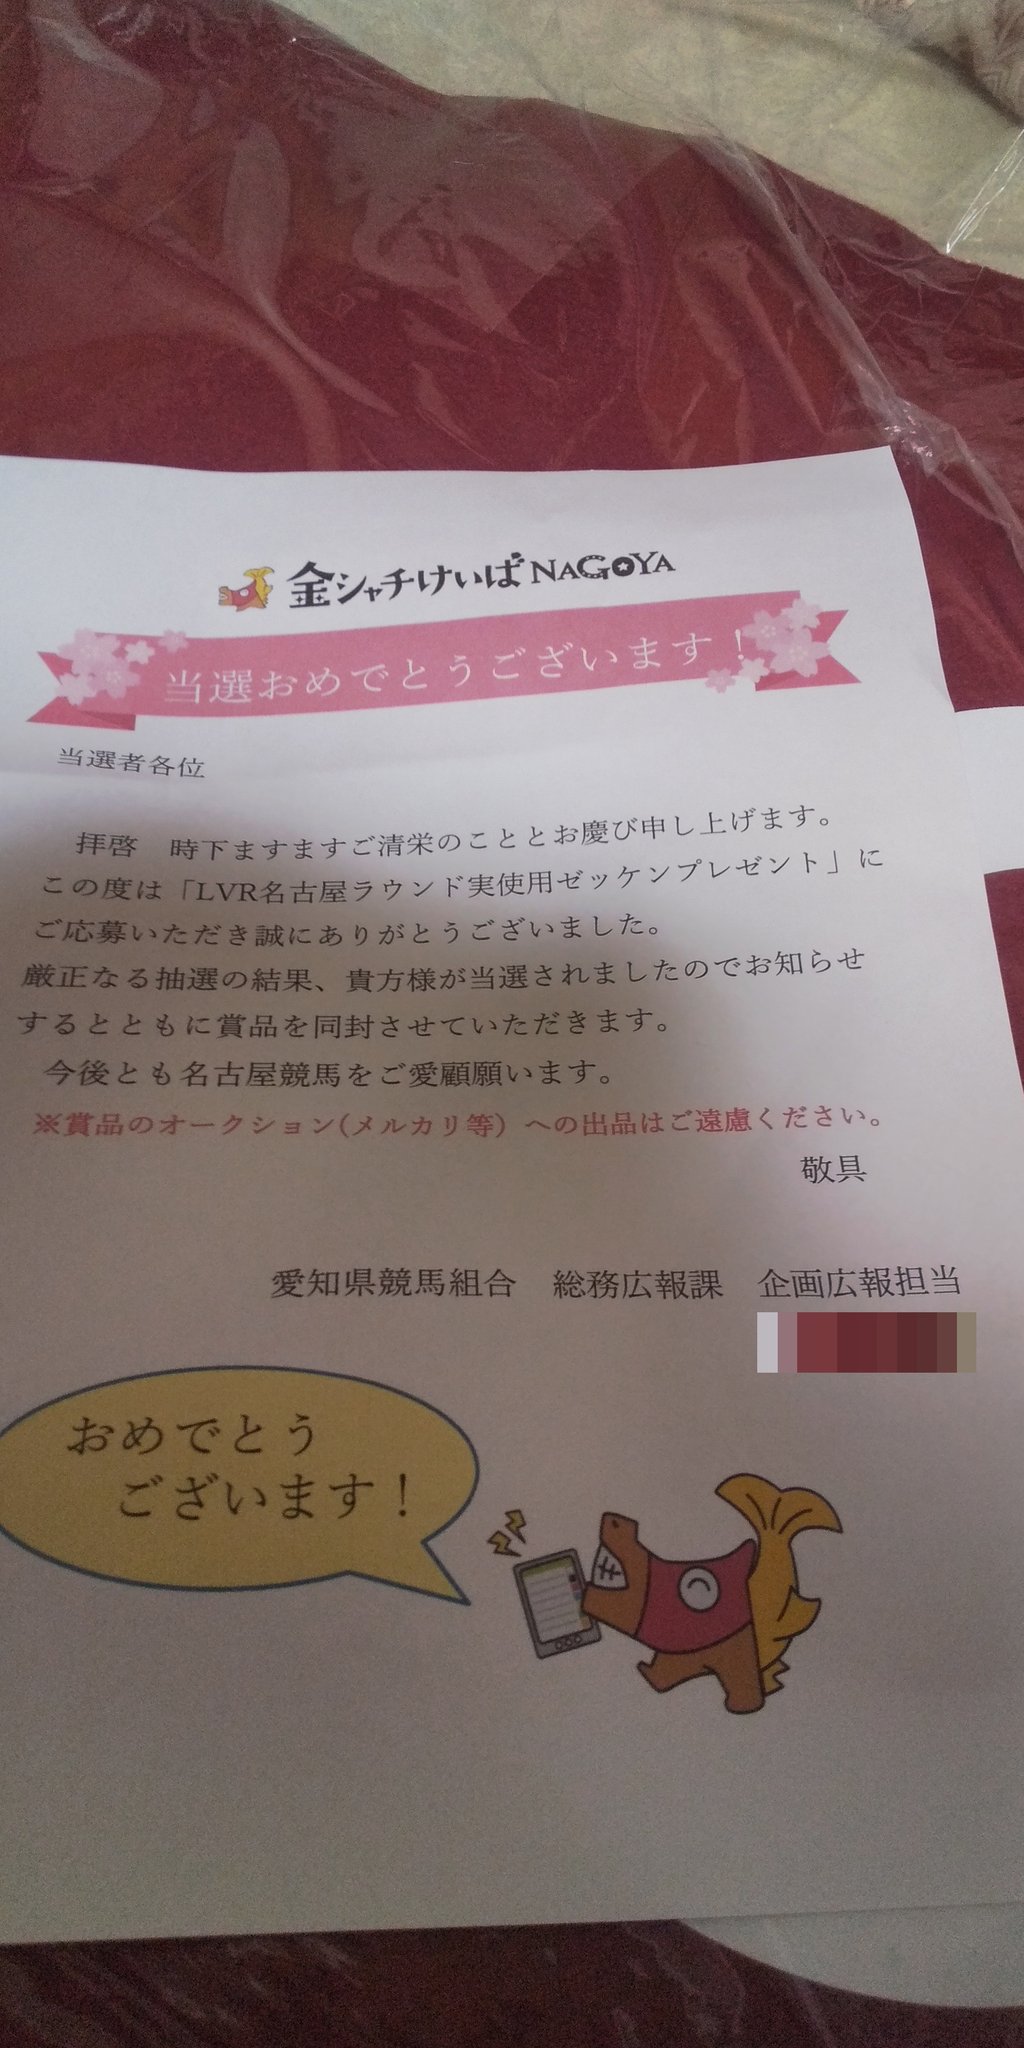 金シャチけいばNAGOYA
当選おめでとうございます！
当選者各位
拝啓　時下ますますご清栄のこととお慶び申し上げます。
この度は「LVR名古屋ラウンド実使用ゼッケンプレゼント」に
ご応募いただき誠にありがとうございました。
厳正なる抽選の結果、貴方様が当選されましたのでお知らせ
するとともに賞品を同封させていただきます。
今後とも名古屋競馬をご愛顧願います。
※賞品のオークション(メルカリ等）への出品はご遠慮ください。
敬具
愛知県競馬組合　総務広報課　企画広報担当
おめでとう
ございます！